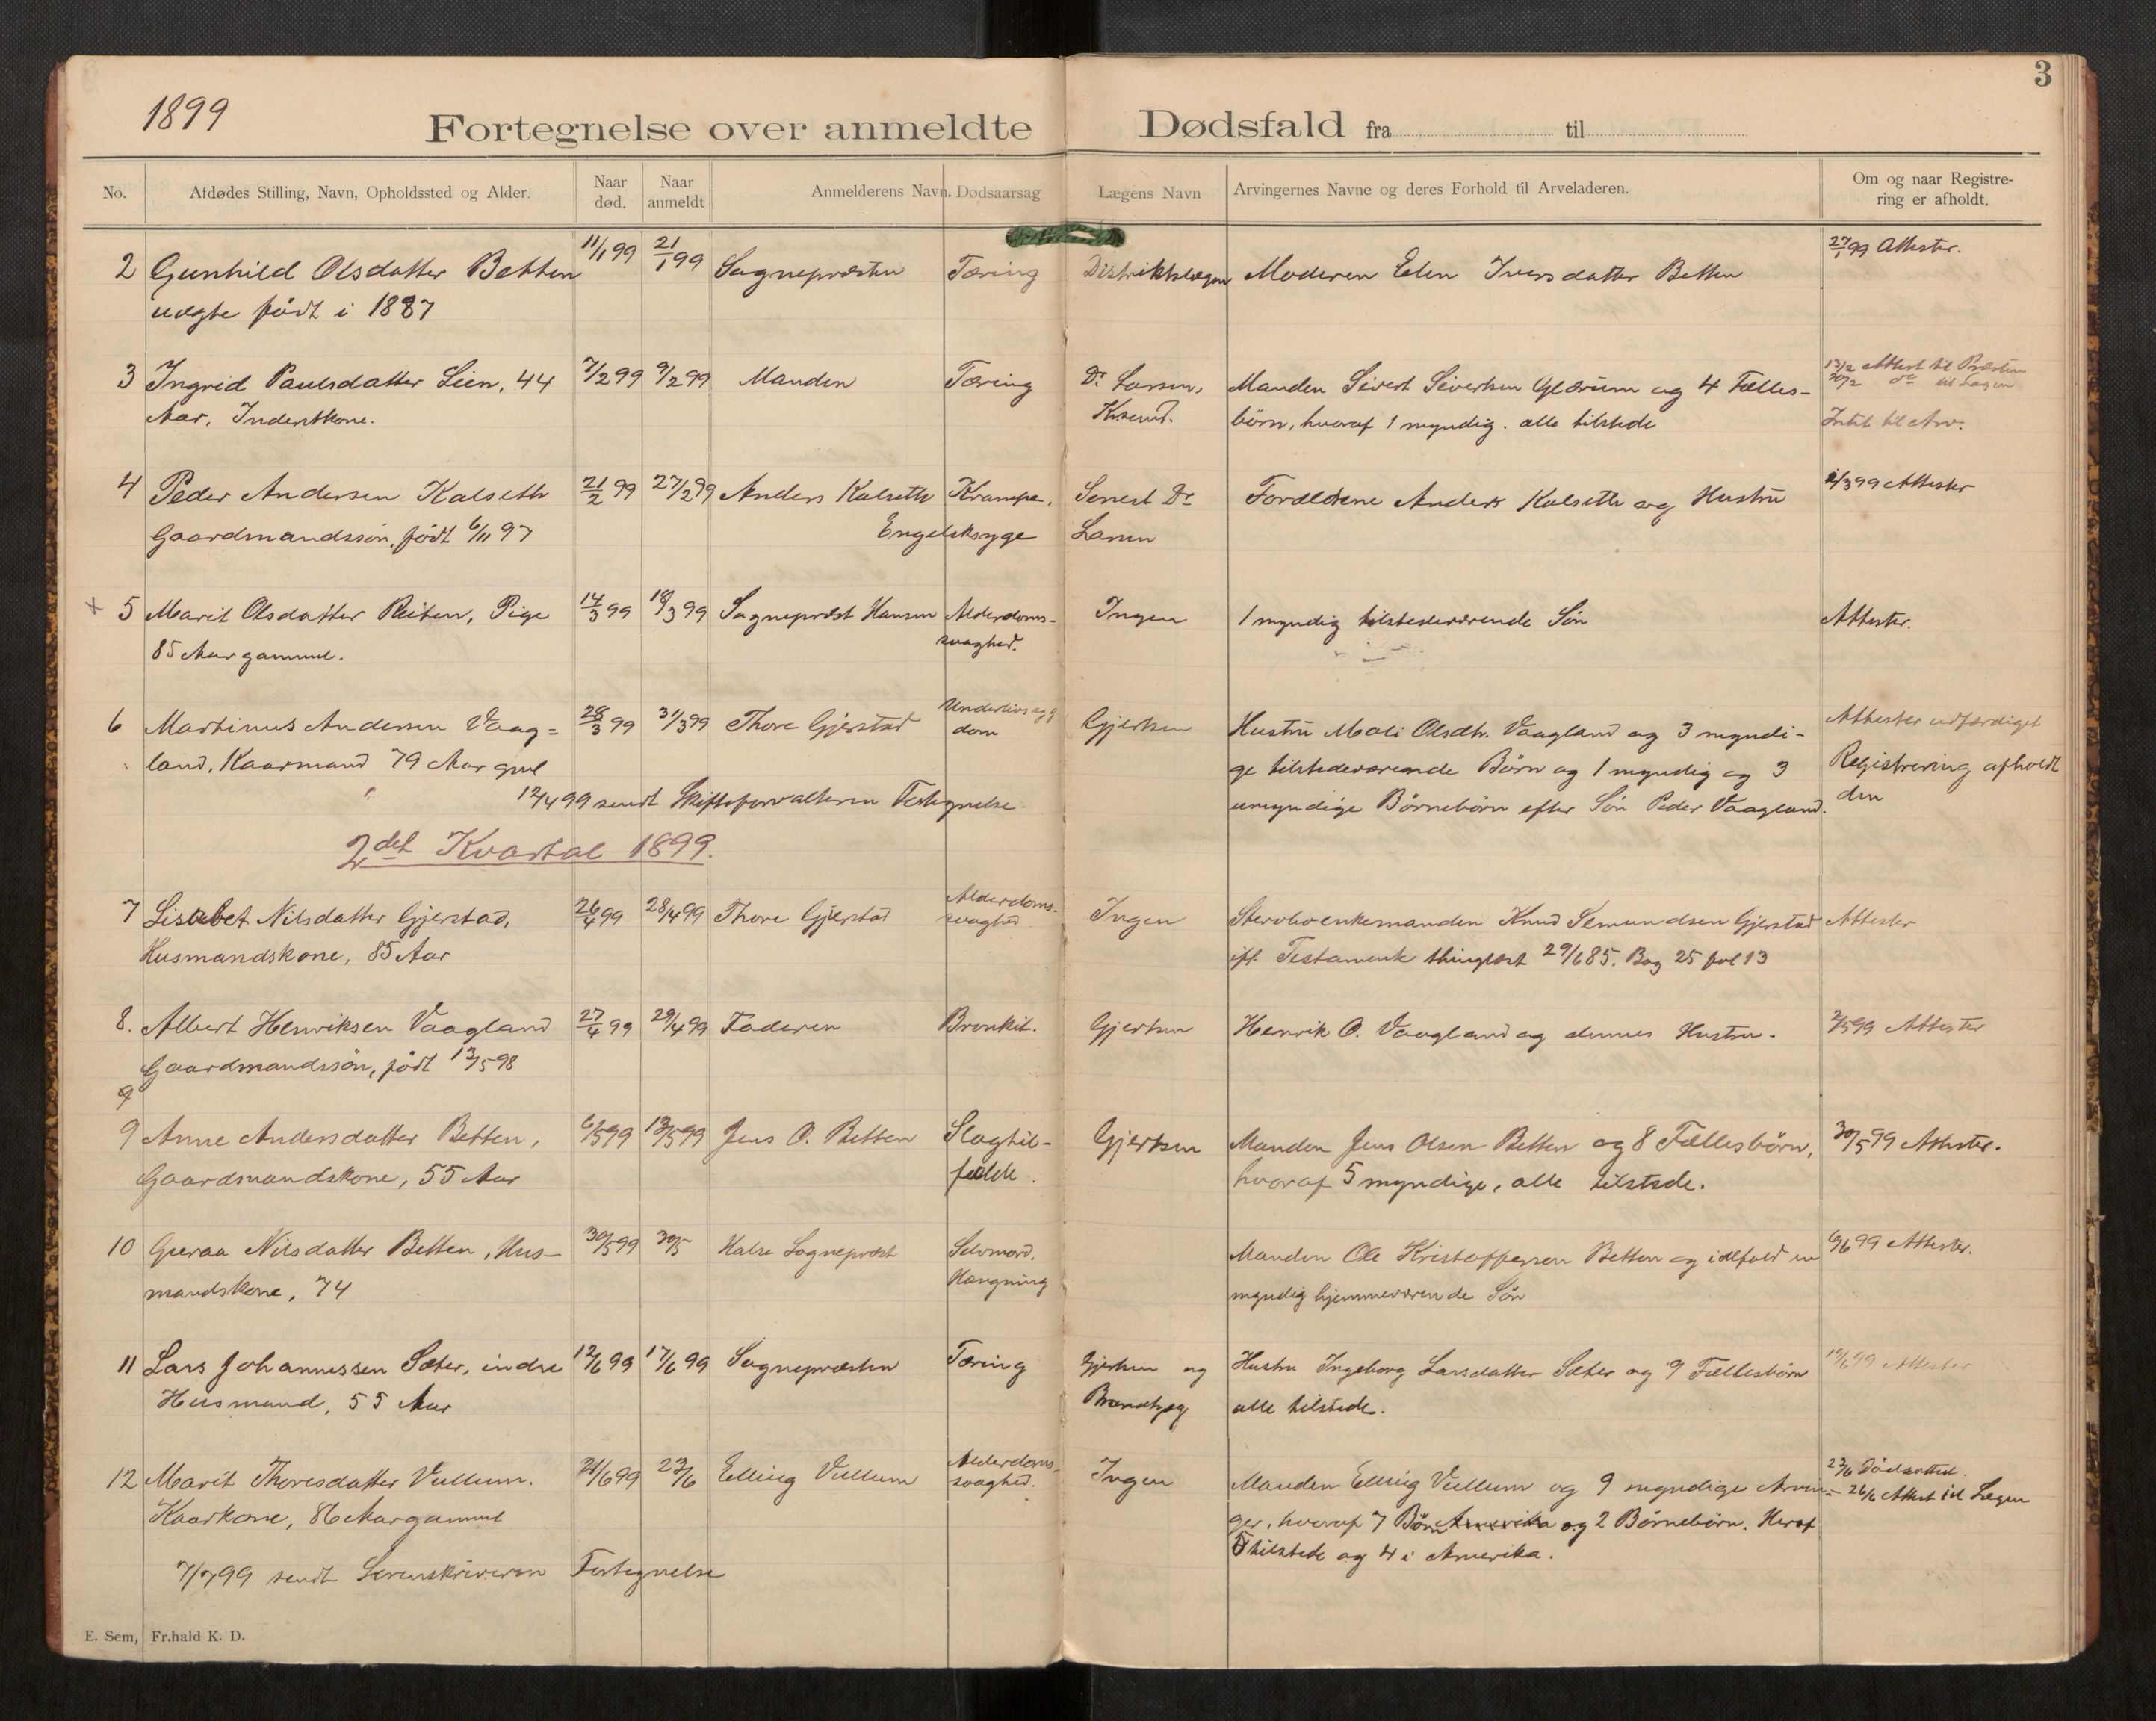 3
1899
Fortegnelse over anmeldte Dødsfald fra til
No. Afdødes Stilling, Navn, Opholdssted og Alder. Naar død. Naar anmeldt Anmelderens Navn. Dødsaarsag Lægens Navn Arvingernes Navne og deres Forhold til Arveladeren. Om og naar Registrering er afholdt.
2 Gunhild Olsdatter Betten 11/1 99 21/1 99 Sognepræsten Tæring Distriktslægen Moderen Elen Iversdatter Betten 27/1 99 Attester.
uægte født i 1887
3 Ingrid Paulsdatter Lien, 44 7/2 99 9/2 99 Manden Tæring Dr. Larsen, Manden Sivert Sivertsen Glærum og 4 Fælles- 13/2 Attest til Præsten
Aar, Inderstkone. Krsund. börn, hvoraf 1 myndig. alle tilstede 20/2 do til Lægen
til Arv.
4 Peder Andersen Kalseth 21/2 99 27/2 99 Anders Kalseth Krampe, Senest Dr Forældrene Anders Kalseth og Hustru 2/3 99 Attester
Gaardmandssön, født 6/11 97 Engelsksyge Larsen
x 5 Marit Olsdatter Reiten, Pige 14/3 99 18/3 99 Sognepræst Hansen Alderdoms- Ingen 1 myndig tilstedeværende Sön Attester.
85 Aar gammel. svaghed.
6 Martinus Andersen Vaag= 28/3 99 31/3 99 Thore Gjerstad Underlivssyg Gjertsen Hustru Mali Olsdtr. Vaagland og 3 myndi- Attester udfærdiget
land, Kaarmand 79 Aar gml dom ge tilstedeværende Börn og 1 myndig og 3 Registrering afholdt
12/4 99 sendt Skifteforvalteren Fortegnelse umyndige Börnebörn efter Sön Peder Vaagland. den
2det Kvartal 1899.
7 Lisabet Nilsdatter Gjerstad, 26/4 99 28/4 99 Thore Gjerstad Alderdoms- svaghed Ingen Stervboenkemanden Knud Semundsen Gjerstad Attester
Husmandskone, 85 Aar ift. Testamente thinglæst 29/6 85. Bog 25 fol 13
8. Albert Henriksen Vaagland 27/4 99 29/4 99 Faderen Bronkit. Gjertsen Henrik O. Vaagland og dennes Hustru. 2/5 99 Attester
Gaardmandssön, født 13/5 98
9
9 Anne Andersdatter Betten, 6/5 99 13/5 99 Jens O. Betten Slagtil- Gjertsen Manden Jens Olsen Betten og 8 Fællesbörn, 30/5 99 Attester.
Gaardmandskone, 55 Aar fælde. hvoraf 5 myndige, alle tilstede.
10 Guraa Nilsdatter Betten, Hus- 30/5 99 30/5 Halse Sognepræst Selvmord. Manden Ole Kristoffersen Betten og idetfald en 6/6 99 Attester.
mandskone, 74 Hængning myndig hjemmeværende Sön
11 Lars Johannessen Sæter, indre 12/6 99 17/6 99 Sognepræsten Tæring Gjertsen og Hustru Ingeborg Larsdatter Sæter og 9 Fællesbörn 19/6 99 Attester
Husmand, 55 Aar alle tilstede.
12 Marit Thoresdatter Vullum. 21/6 99 23/6 Elling Vullum Alderdoms- svaghed. Ingen Manden Elling Vullum og 9 myndige Arvin- 23/6 Dödsattest.
Kaarkone, 86 Aar gammel ger, hvoraf 7 Börn Amerika og 2 Börnebörn. Heraf 26/6 Attest til Lægen
5 tilstede og 4 i Amerika.
7/7 99 sendt Sorenskriveren Fortegnelse
E. Sem, Fr.hald K. D.